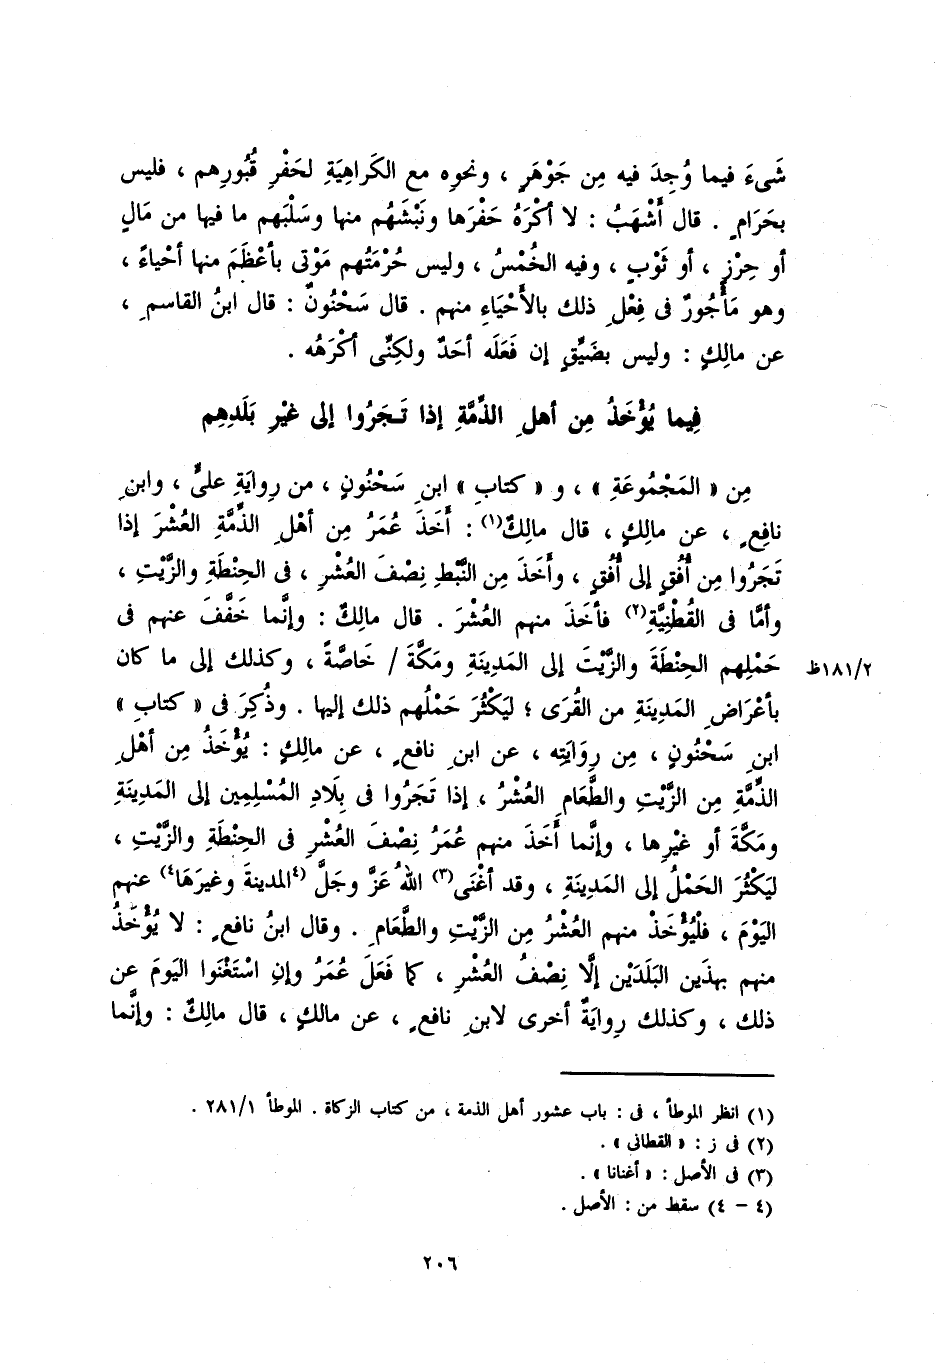 شَىءَ فيما وُجِدَ فيه مِن جَوْهَرٍ ، ونحوِه مع الكَراهِيَةِ لحَفْرِ قُبُورِهم ، فليس
بحَرَامٍ . قال أَشْهَبُ : لا أكْرَهُ حَفْرَها ونَبْشَهُم منها وسَلْبَهم ما فيها من مَالٍ
أو حِرْزٍ ، أو ثَوْبٍ ، وفيه الخُمْسُ ، وليس حُرْمَتُهم مَوْتى بأعْظَمَ منها أحْياءً ،
وهو مَأْجُورٌ فى فِعْلِ ذلك بالأَحْيَاءِ منهم . قال سَحْنُونٌ : قال ابنُ القاسمِ ،
عن مالِكٍ : وليس بضَيِّقٍ إن فَعَلَه أحَدٌ ولكِنِّى أكْرَهُه .
فِيما يُؤْخَذُ مِن أهلِ الذِّمَّةِ إذا تَـجَرُوا إلى غيْرِ بَلَدِهِم
مِن « المَجْمُوعَةِ » ، و « كتابِ » ابنِ سَحْنُونٍ ، من رِوايَةِ علىٍّ ، وابنِ
نافِعٍ ، عن مالِكٍ ، قال مالِكٌ(١) : أَخَذَ عُمَرُ مِن أهْلِ الذِّمَّةِ العُشْرَ إذا
تَجَرُوا مِن أُفُقٍ إلى أُفُقٍ ، وأَخَذَ مِن النَّبْطِ نِصْفَ العُشْرِ ، فى الحِنْطَةِ والزَّيْتِ ،
وأمَّا فى القُطْنِيَّةِ(٢) فأخَذَ منهم العُشْرَ . قال مالِكٌ : وإنَّما خَفَّفَ عنهم فى
حَمْلِهم الحِنْطَةَ والزَّيْتَ إلى المَدِينَةِ ومَكَّةَ / خَاصَّةً ، وكذلك إلى ما كان
١٨١/٢ظ
بأعْرَاضِ المَدِينَةِ من القُرَى ؛ ليَكْثُرَ حَمْلُهم ذلك إليها . وذُكِرَ فى « كتابِ »
ابنِ سَحْنُونٍ ، مِن رِوَايَتِه ، عن ابنِ نافعٍ ، عن مالِكٍ : يُؤْخَذُ مِن أهْلِ
الذِّمَّةِ مِن الزَّيْتِ والطَّعَامِ العُشْرُ ، إذا تَجَرُوا فى بِلَادِ المُسْلِمِين إلى المَدِينَةِ
ومَكَّةَ أو غيْرِها ، وإنَّما أَخَذَ منهم عُمَرُ نِصْفَ العُشْرِ فى الحِنْطَةِ والزَّيْتِ ،
ليَكْثُرَ الحَمْلُ إلى المَدِينَةِ ، وقد أغْنَى(٣) اللهُ عَزَّ وجَلَّ (٤المدينةَ وغيرَهَا٤) عنهم
اليَوْمَ ، فلْيُؤْخَذْ منهم العُشْرُ مِن الزَّيْتِ والطَّعَامِ . وقال ابنُ نافعٍ : لا يُؤْخَذُ
منهم بهذَين البَلَدَيْن إلَّا نِصْفُ العُشْرِ ، كما فَعَلَ عُمَرُ وإنِ اسْتَغْنَوا اليَومَ عن
ذلك ، وكذلك رِوايَةٌ أخرى لابنِ نافعٍ ، عن مالكٍ ، قال مالِكٌ : وإنَّما
(١) انظر الموطأ ، فى : باب عشور أهل الذمة ، من كتاب الزكاة . الموطأ ٢٨١/١ .
(٢) فى ز : « القطانى » .
(٣) فى الأصل : « أغنانا » .
(٤ – ٤) سقط من : الأصل .
٢٠٦